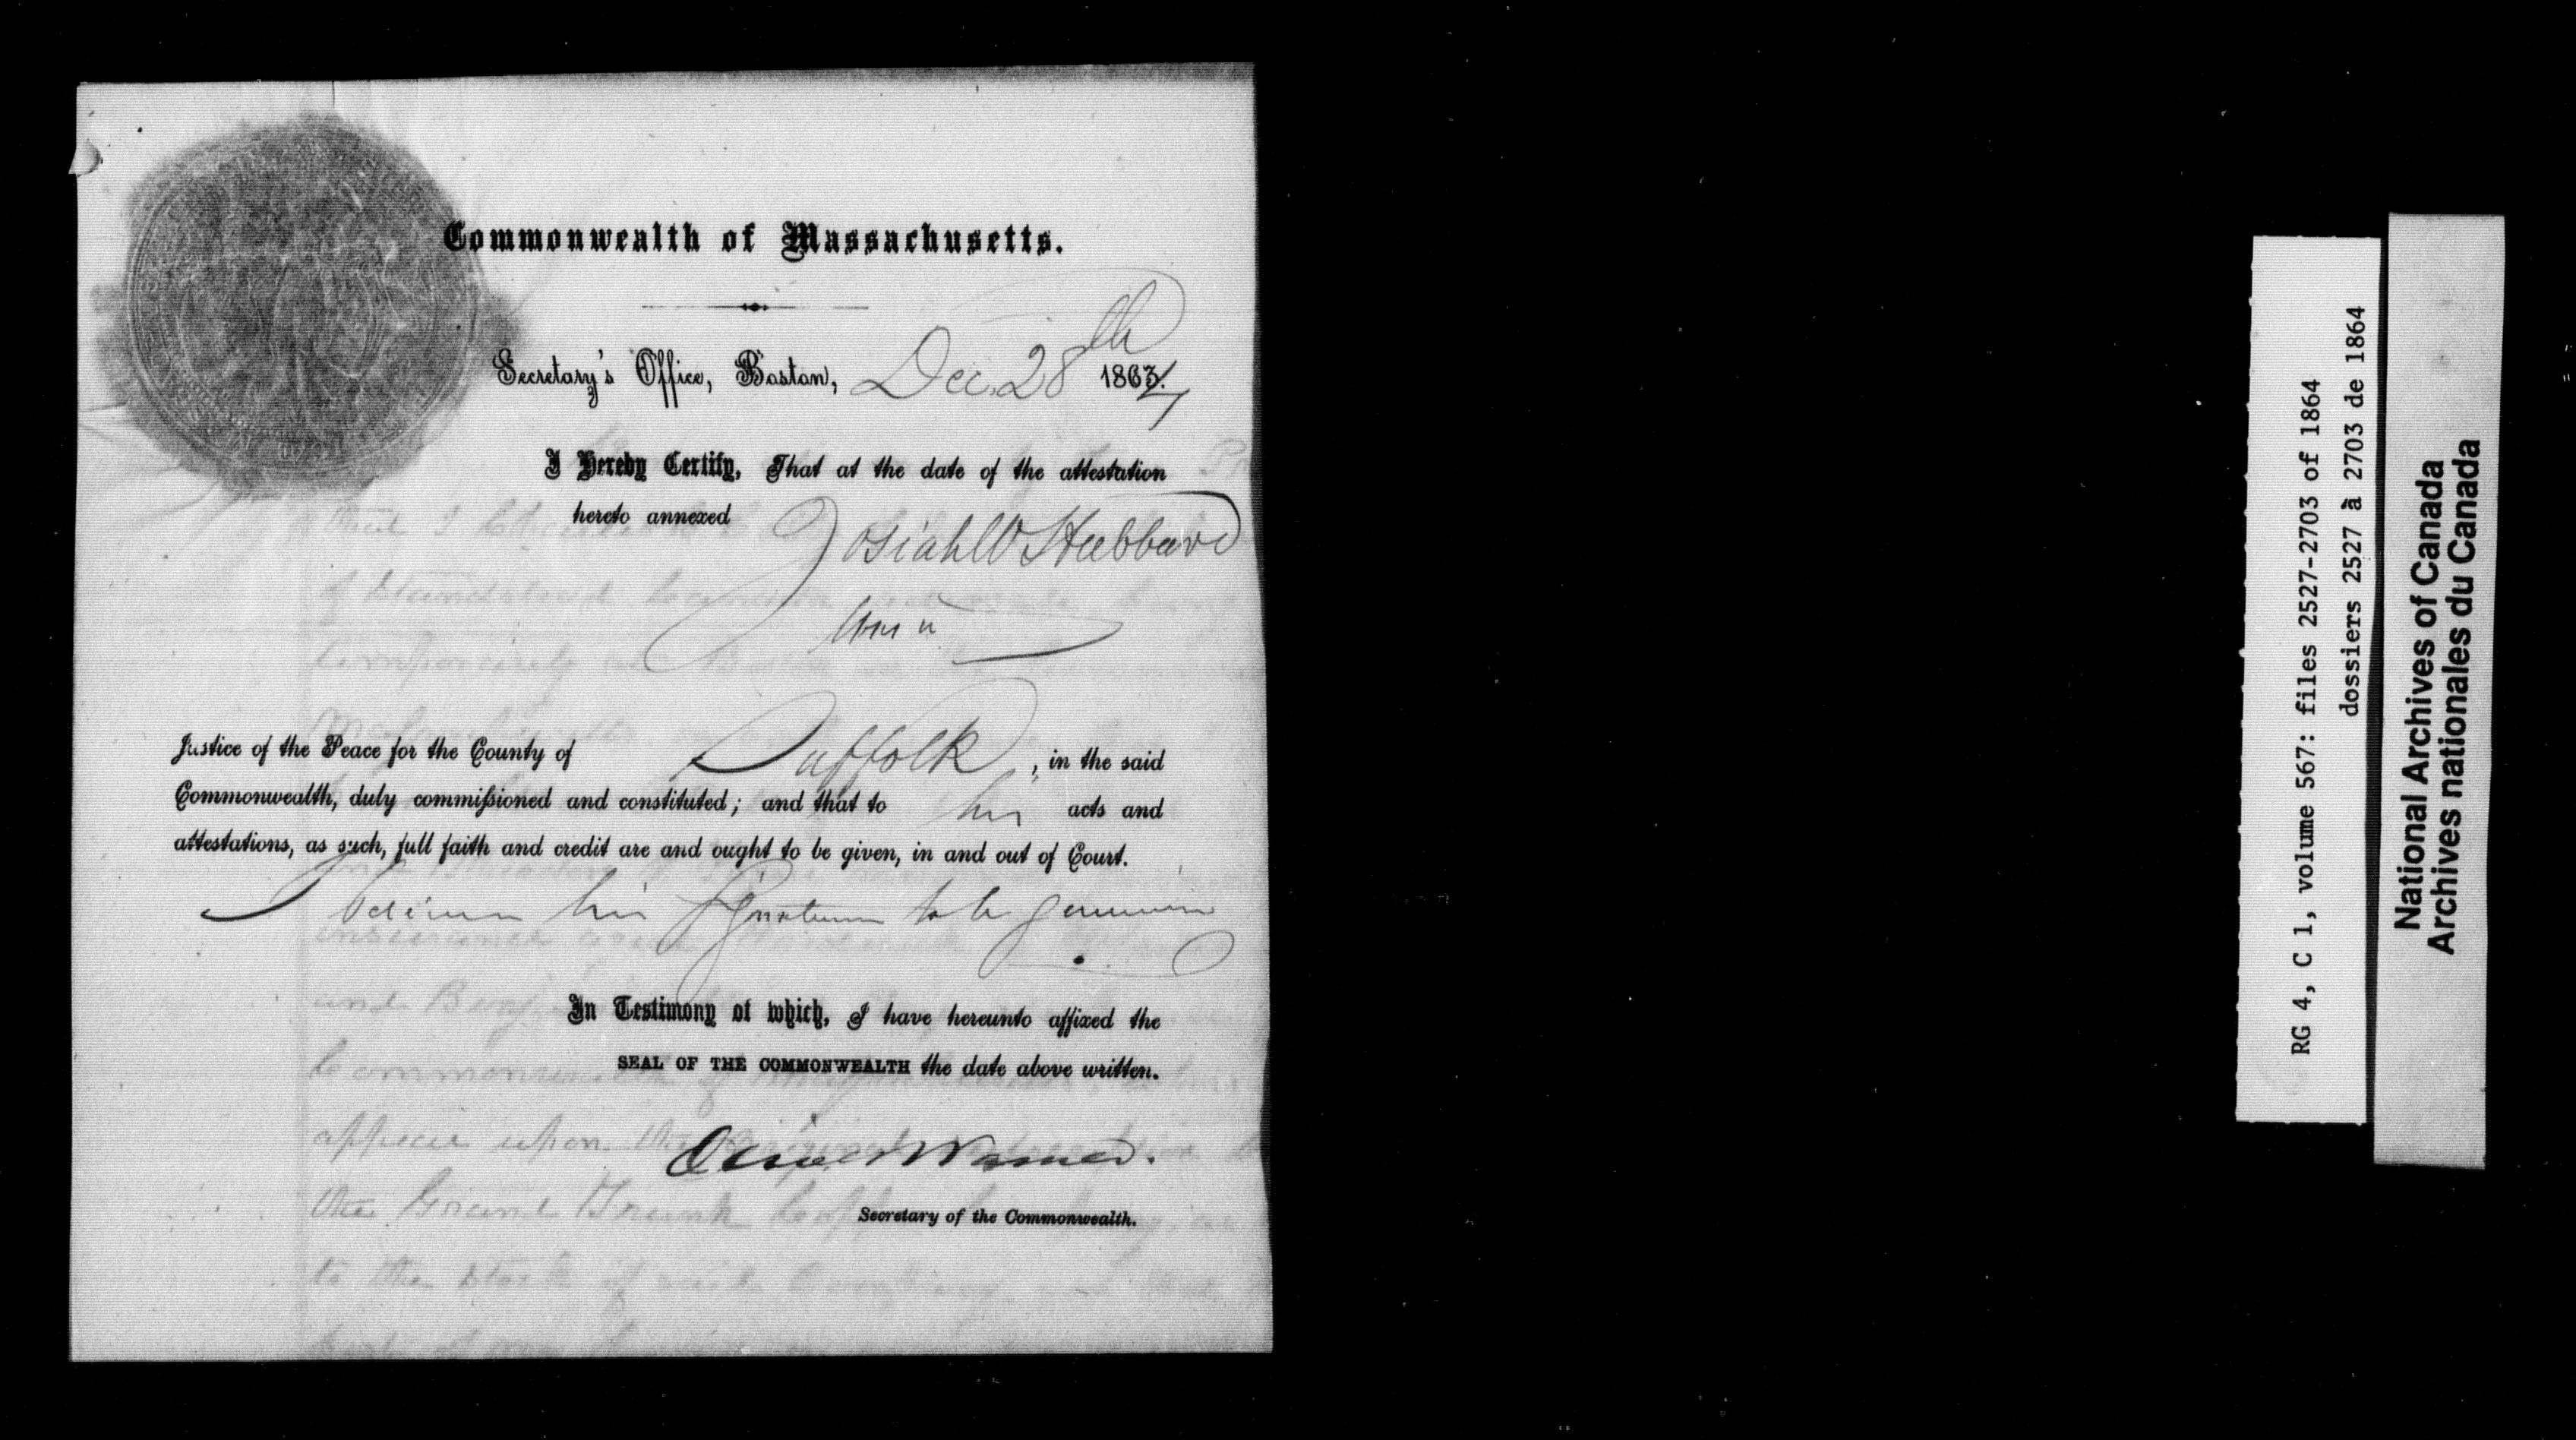 Commonwealth of Massachusetts.
Secretary's Office, Boston, Dec. 28th 1864
I Hereby Certify, That at the date of the attestation
hereto annexed Josiah W Hubbard
was a
Justice of the Peace for the County of Suffolk, in the said
Commonwealth, duly commissioned and constituted; and that to his acts and
attestations, as such, full faith and credit are and ought to be given, in and out of Court.
I believe his signature to be genuine
In Testimony of which, I have hereunto affixed the
SEAL OF THE COMMONWEALTH the date above written.
Oliver Warner.
Secretary of the Commonwealth.
appear upon the
the Grand Trunk
to the Stock of said Company
RG 4, C 1, volume 567: files 2527-2703 of 1864
dossiers 2527 à 2703 de 1864
National Archives of Canada
Archives nationales du Canada